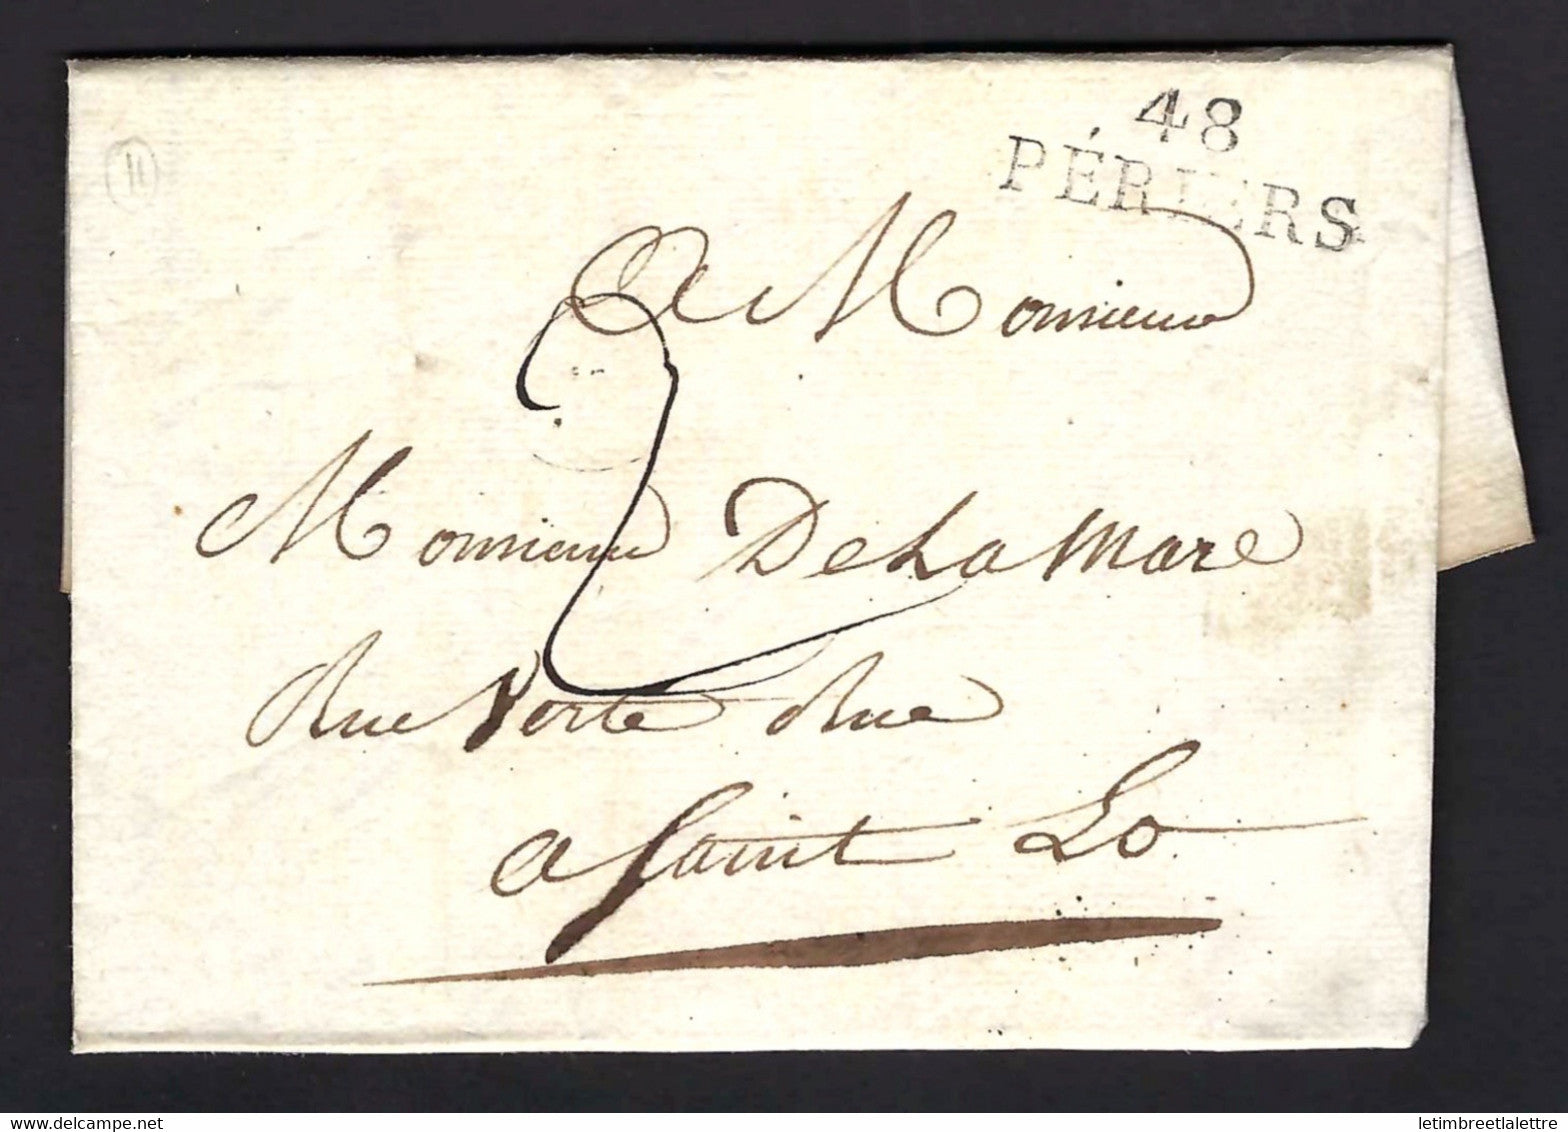 48
PÉRIERS
11
A Monsieur
2
Monsieur De La Mare
Rue Porte Rue
a Saint Lo
www.delcampe.net
letimbreetlalettre